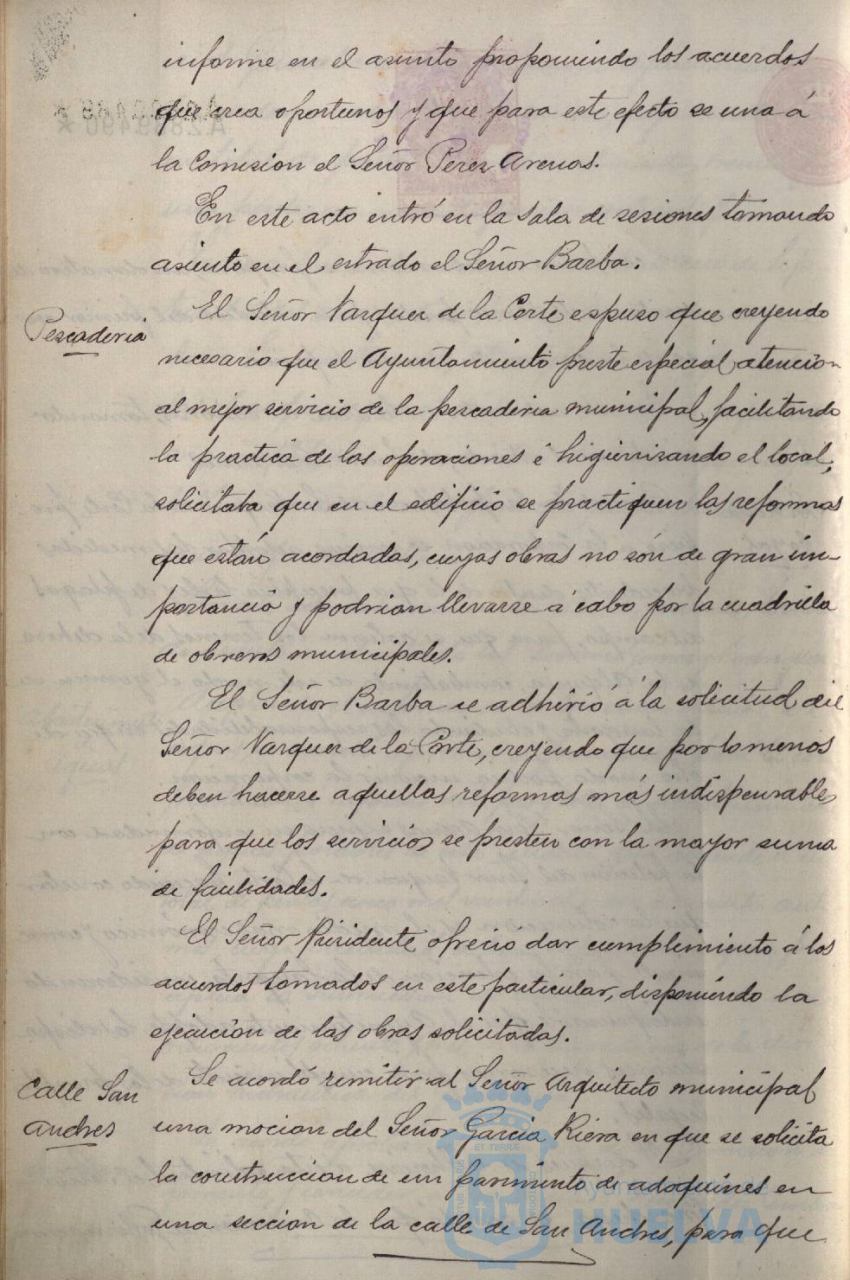 informe en el asunto proponiendo los acuerdos
que crea oportunos y que para este efecto se una á
la Comision el Señor Perez Arenas.
En este acto entró en la sala de sesiones tomando
asiento en el estrado el Señor Barba.
Pescaderia
El Señor Vazquez de la Corte espuso que creyendo
necesario que el Ayuntamiento preste especial atencion
al mejor servicio de la pescaderia municipal, facilitando
la practica de las operaciones é higienizando el local,
solicitaba que en el edificio se practiquen las reformas
que están acordadas, cuyas obras no són de gran im-
portancia y podrian llevarse á cabo por la cuadrilla
de obreros municipales.
El Señor Barba se adhirió á la solicitud del
Señor Vazquez de la Corte, creyendo que por lo menos
deben hacerse aquellas reformas más indispensables
para que los servicios se presten con la mayor suma
de facilidades.
El Señor Presidente ofreció dar cumplimiento á los
acuerdos tomados en este particular, disponiendo la
ejecucion de las obras solicitadas.
Calle San
Andres
Se acordó remitir al Señor Arquitecto municipal
una mocion del Señor Garcia Riera en que se solicita
la construccion de un pavimento de adoquines en
una seccion de la calle de San Andres, para que
HUELVA